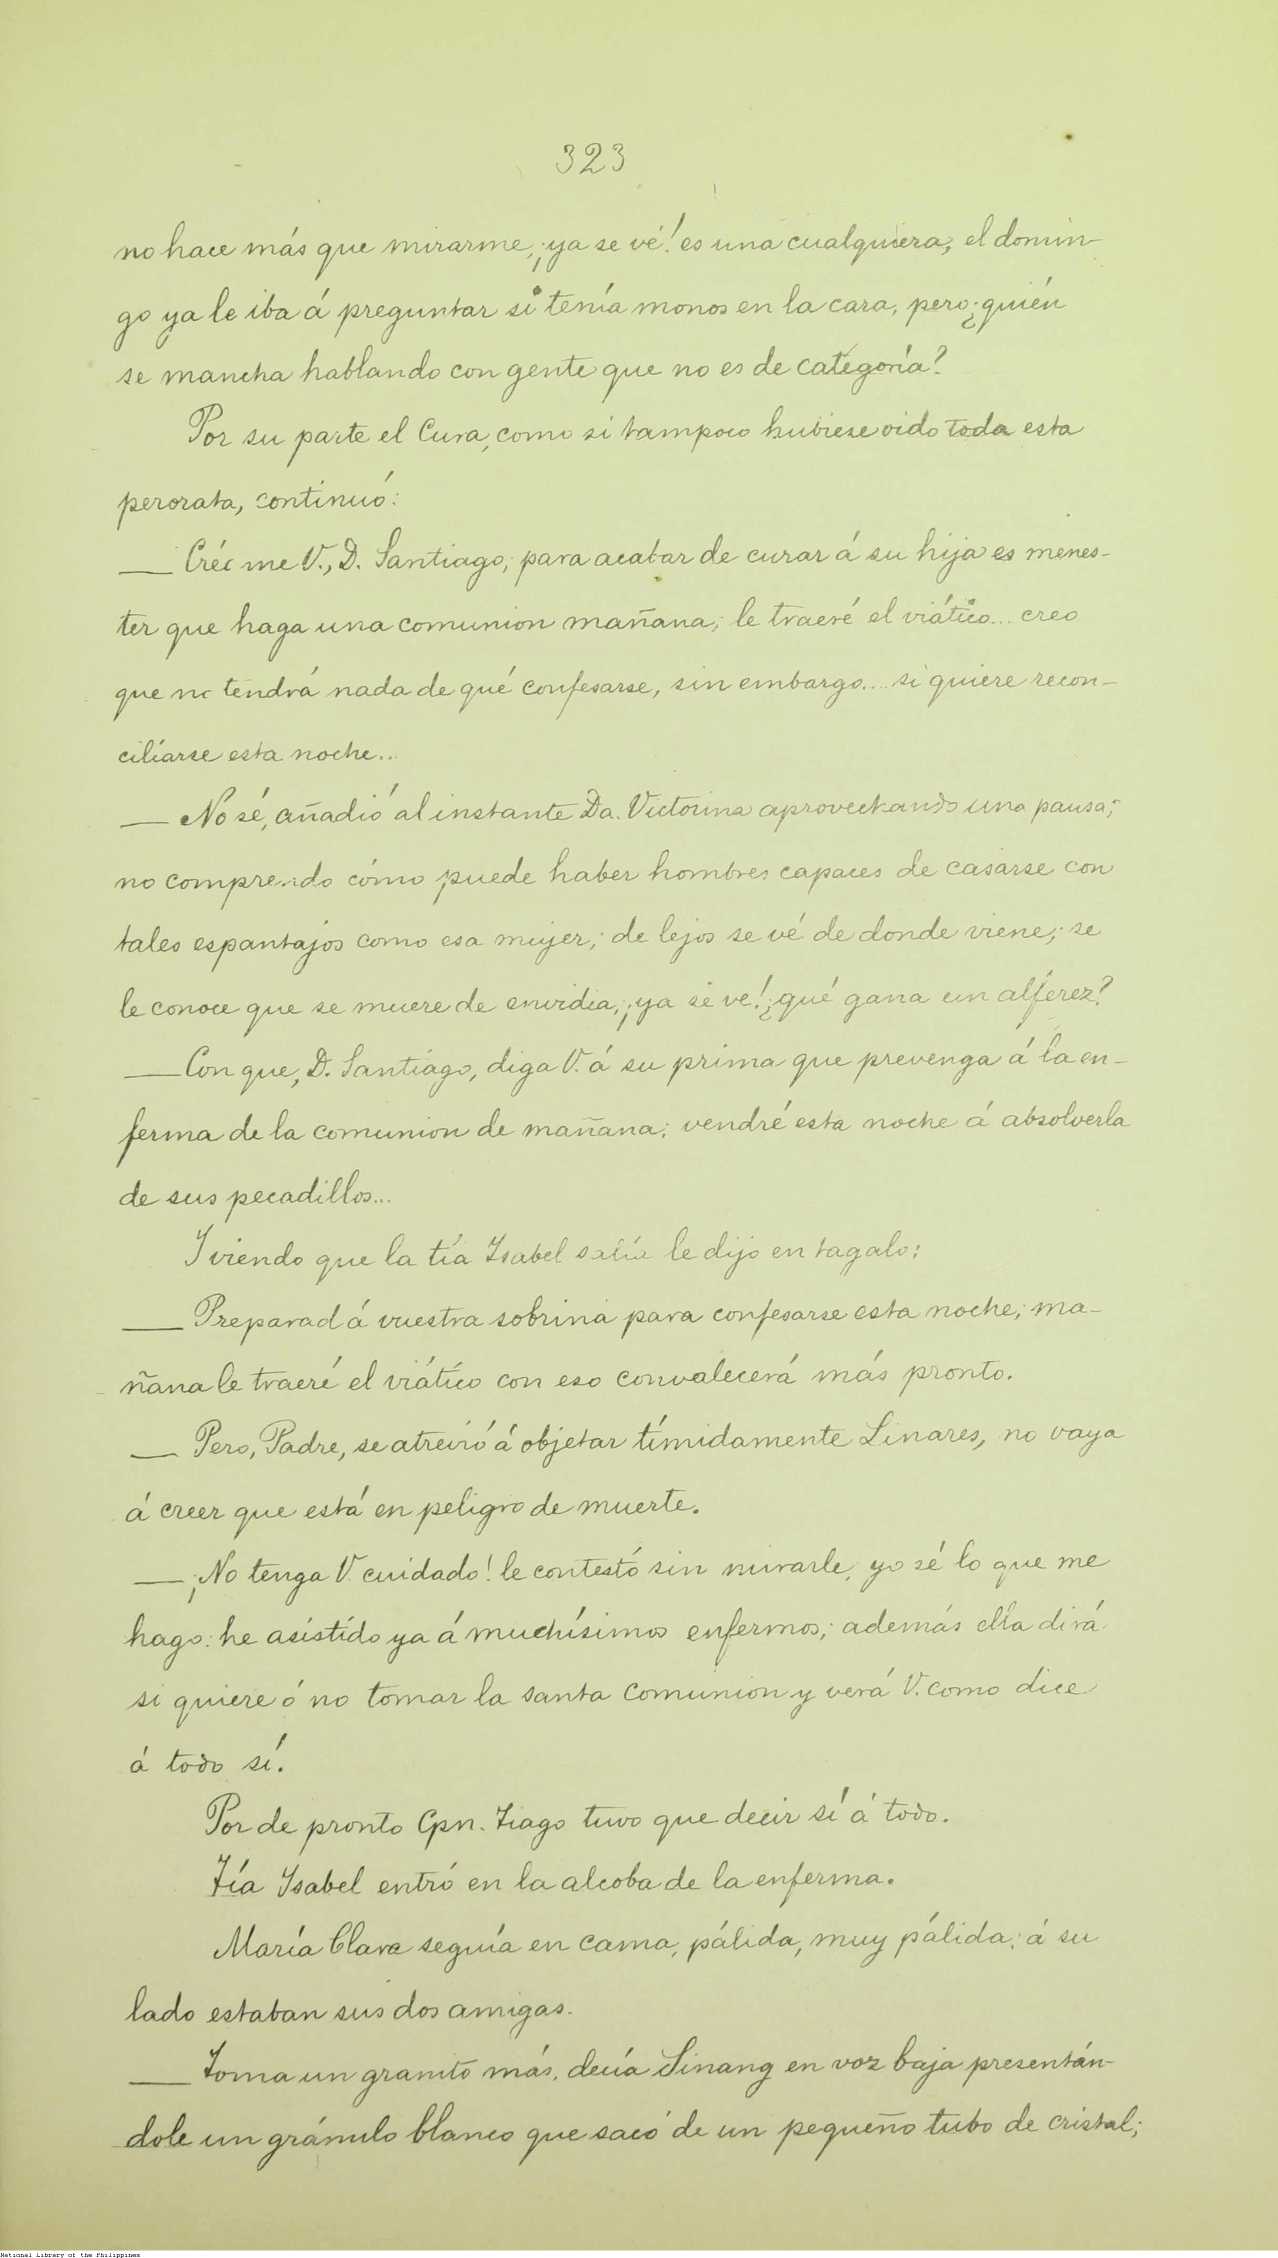 323
no hace más que mirarme, ¡ya se vé! es una cualquiera, el domin-
go ya le iba á preguntar si tenía monos en la cara, pero ¿quién
se mancha hablando con gente que no es de categoría?
Por su parte el Cura, como si tampoco hubiese oido toda esta
perorata, continuó:
— Créame V., D. Santiago; para acabar de curar á su hija es menes-
ter que haga una comunion mañana; le traeré el viático... creo
que no tendrá nada de qué confesarse, sin embargo.... si quiere recon-
ciliarse esta noche...
— No sé, añadió al instante Da. Victorina aprovechando una pausa;
no comprendo cómo puede haber hombres capaces de casarse con
tales espantajos como esa mujer; de lejos se vé de donde viene; se
le conoce que se muere de envidia, ¡ya se ve! ¿qué gana un alférez?
— Con que, D. Santiago, diga V. á su prima que prevenga á la en-
ferma de la comunion de mañana; vendré esta noche á absolverla
de sus pecadillos...
Y viendo que la tía Isabel salía le dijo en tagalo:
— Preparad á vuestra sobrina para confesarse esta noche; ma-
ñana le traeré el viático con eso convalecerá más pronto.
— Pero, Padre, se atrevió á objetar tímidamente Linares, no vaya
á creer que está en peligro de muerte.
— ¡No tenga V. cuidado! le contestó sin mirarle, yo sé lo que me
hago: he asistido ya á muchísimos enfermos; además ella dirá
si quiere ó no tomar la santa comunion y verá V. como dice
á todo sí.
Por de pronto Cpn. Tiago tuvo que decir sí á todo.
Tía Isabel entró en la alcoba de la enferma.
María Clara seguía en cama, pálida, muy pálida; á su
lado estaban sus dos amigas.
— Toma un granito más, decía Sinang en voz baja presentán-
dole un gránulo blanco que sacó de un pequeño tubo de cristal;
National Library of the Philippines